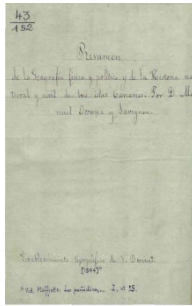 43
152
Resumen
de la Geografía física y política y de la Historia na
tural y civil de las islas Canarias. Por D. Ma
nuel Osuna y Saviñon.
Establecimiento tipográfico de V. Bonnet.